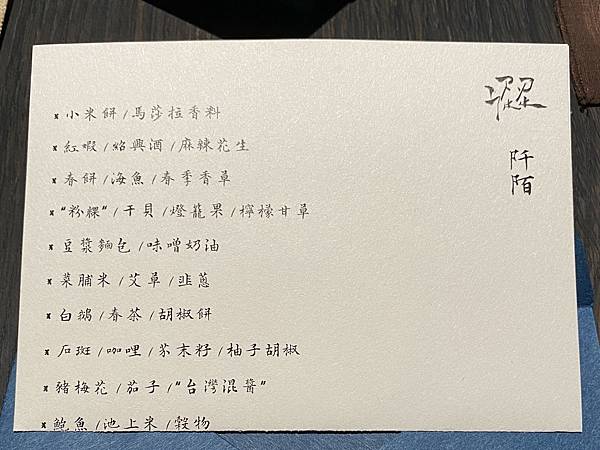 × 小米餅 / 馬莎拉香料
× 紅蝦 / 紹興酒 / 麻辣花生
× 春餅 / 海魚 / 春季香草
× “粉粿” / 干貝 / 燈籠果 / 檸檬甘草
× 豆漿麵包 / 味噌奶油
× 菜脯米 / 艾草 / 韭蔥
× 白鵝 / 春茶 / 胡椒餅
× 石斑 / 咖哩 / 芥末籽 / 柚子胡椒
× 豬梅花 / 茄子 / “台灣混醬”
× 鮑魚 / 池上米 / 穀物
阡陌